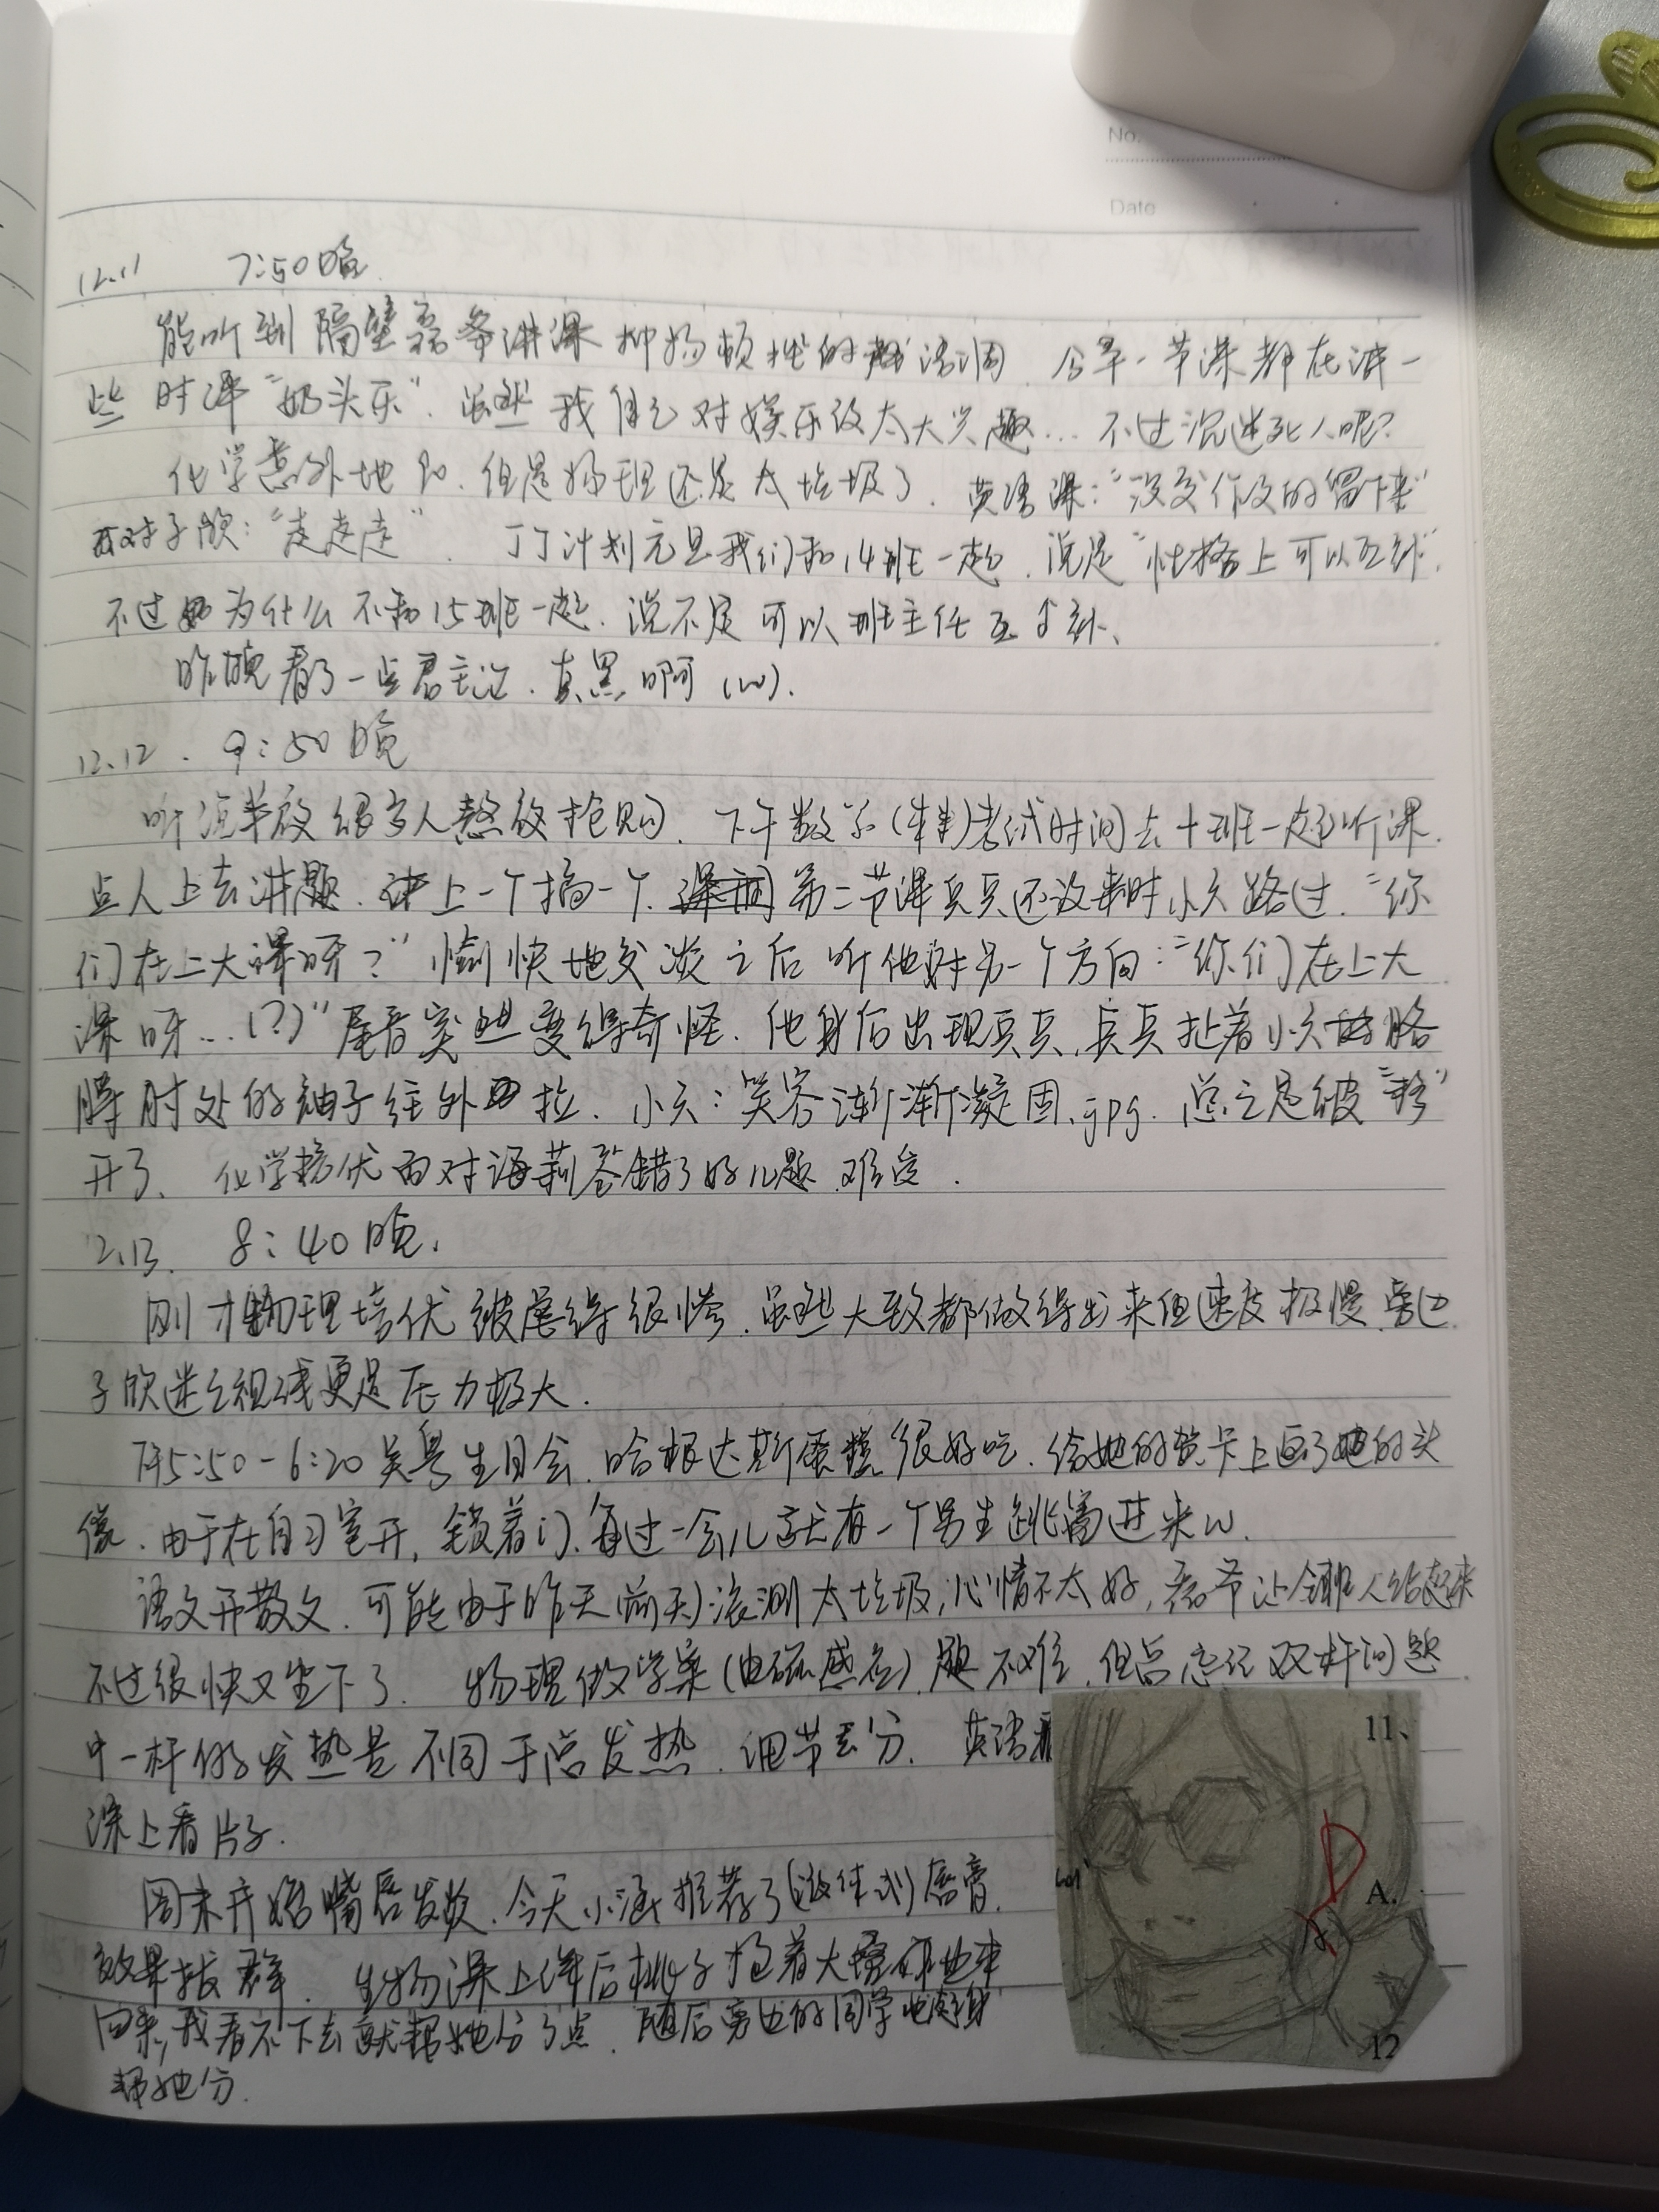 No.
Date
12.11 7:50晚
能听到隔壁 讲课抑扬顿挫的语调. 今早一节课都在讲一
些时评"奶头乐". 虽然我自己对娱乐没太大兴趣... 不过沉迷死人呢?
化学意外地 但是物理还是太垃圾了. 英语课:"没交作文的留下来"
对子欣:"走走走". 丁丁计划元旦我们和14班一起. 说是"性格上可以互补".
不过为什么不和15班一起. 说不定可以班主任互补.
昨晚看了一点君主论. 真黑啊(w).
12.12. 9:50晚
听说半夜很多人熬夜抢购. 下午数学( )考试时间去十班一起听课.
点人上去讲题. 上一个搞一个. 第二节课兵兵还没来时小六路过. "你
们在上大课呀?" 愉快地交谈之后听他对另一个方向:"你们在上大
课呀...(?)" 尾音突然变得奇怪. 他身后出现兵兵. 兵兵扯着小六胳
膊肘处的袖子往外拉. 小六:笑容渐渐凝固.jpg. 总之是被"移"
开了. 化学培优面对海莉答错了好几题. 难受.
12.13. 8:40晚.
刚才物理培优被虐得很惨. 虽然大致都做得出来但速度极慢. 旁边
子欣迷之组 更是压力极大.
下午5:50-6:20吴粤生日会. 哈根达斯蛋糕很好吃. 给她的贺卡上画了她的头
像. 由于在自习室开, 锁着门. 每过一会儿就有一个男生跳窗进来w.
语文开散文. 可能由于昨天(前天)滚测太垃圾, 心情不太好, 让全班人站起来
不过很快又坐下了. 物理做学案(电磁感应). 题不难. 但总忘记双杆问题
中一杆的发热是不同于总发热. 细节丢分. 英语
课上看片子.
周末开始嘴唇发炎. 今天小涵推荐了(液体式)唇膏.
效果拔群. 生物课上课后桃子抱着大 作业本
回来, 我看不下去就帮她分了点. 随后旁边的同学也起身
帮她分.
11、
A.
12